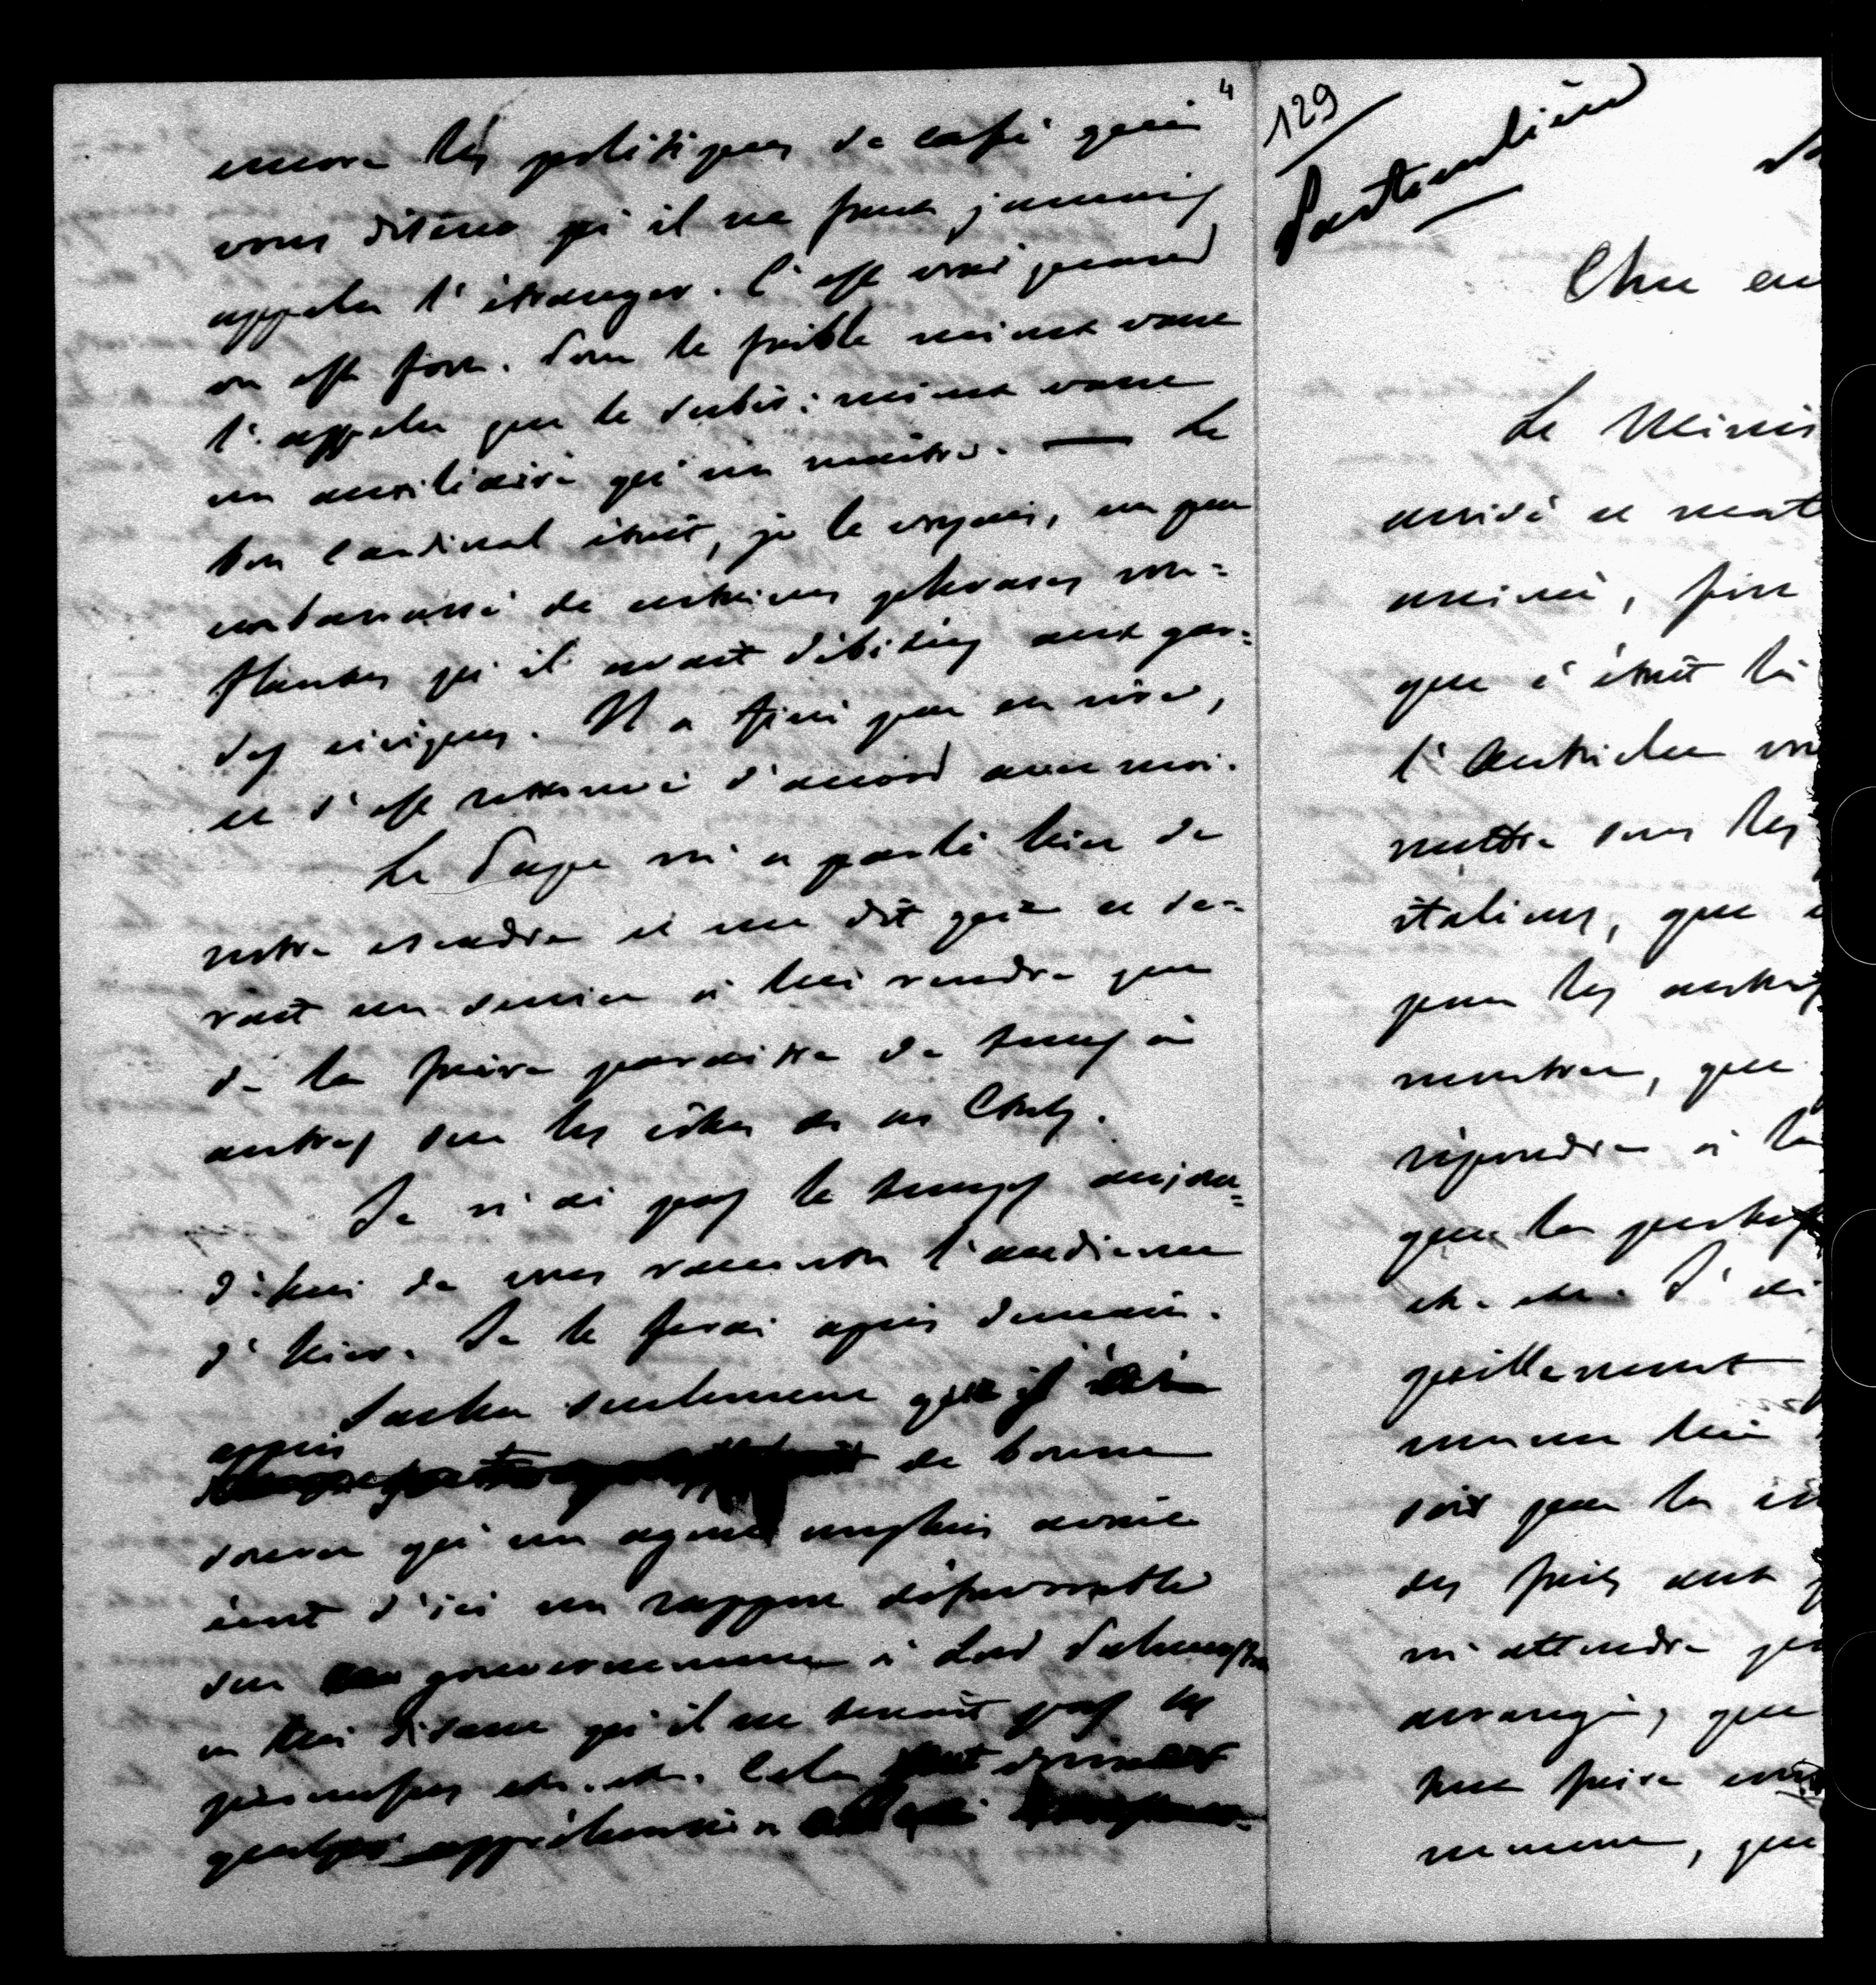 4
encore les politiques de café qui
vous disent qu'il ne faut jamais
appeler l'étranger. C'est vrai quand
on est fort. Pour le faible mieux vaut
l'appeler que le subir: mieux vaut
un auxiliaire qu'un maître. — Le
bon Cardinal était, je le voyais, un peu
embarrassé de certaines phrases ron=
flantes qu'il avait débitées aux gar=
des civiques. Il a fini par en rire,
et s'est retrouvé d'accord avec moi.
Le Pape m'a parlé hier de
notre escadre et me dit que ce se=
rait un service à lui rendre que
de la faire paraître de temps à
autres sur les côtes de ses Etats.
Je n'ai pas le temps aujour=
d'hui de vous raconter l'audience
d'hier. Je le ferai après demain.
Sachez seulement qu'il
appris de bonne
source qu'un agent anglais avait
écrit d'ici un rapport défavorable
sur gouvernement à Lord Palmerston
en lui disant qu'il ne tenait pas ses
promesses etc. etc. Cela
quelque appréhension
129
Particulière
Cher
Le Minis
arrivé ce mat
animé, fort
que c'était là
l'Autriche
mettre sous les
italiens, que
pour les autres
montrer, que
répondre à la
que la
etc. etc. J'ai
quillement
comme lui
soit par la
des faits aux
m'attendre
arrangé, que
faire
que